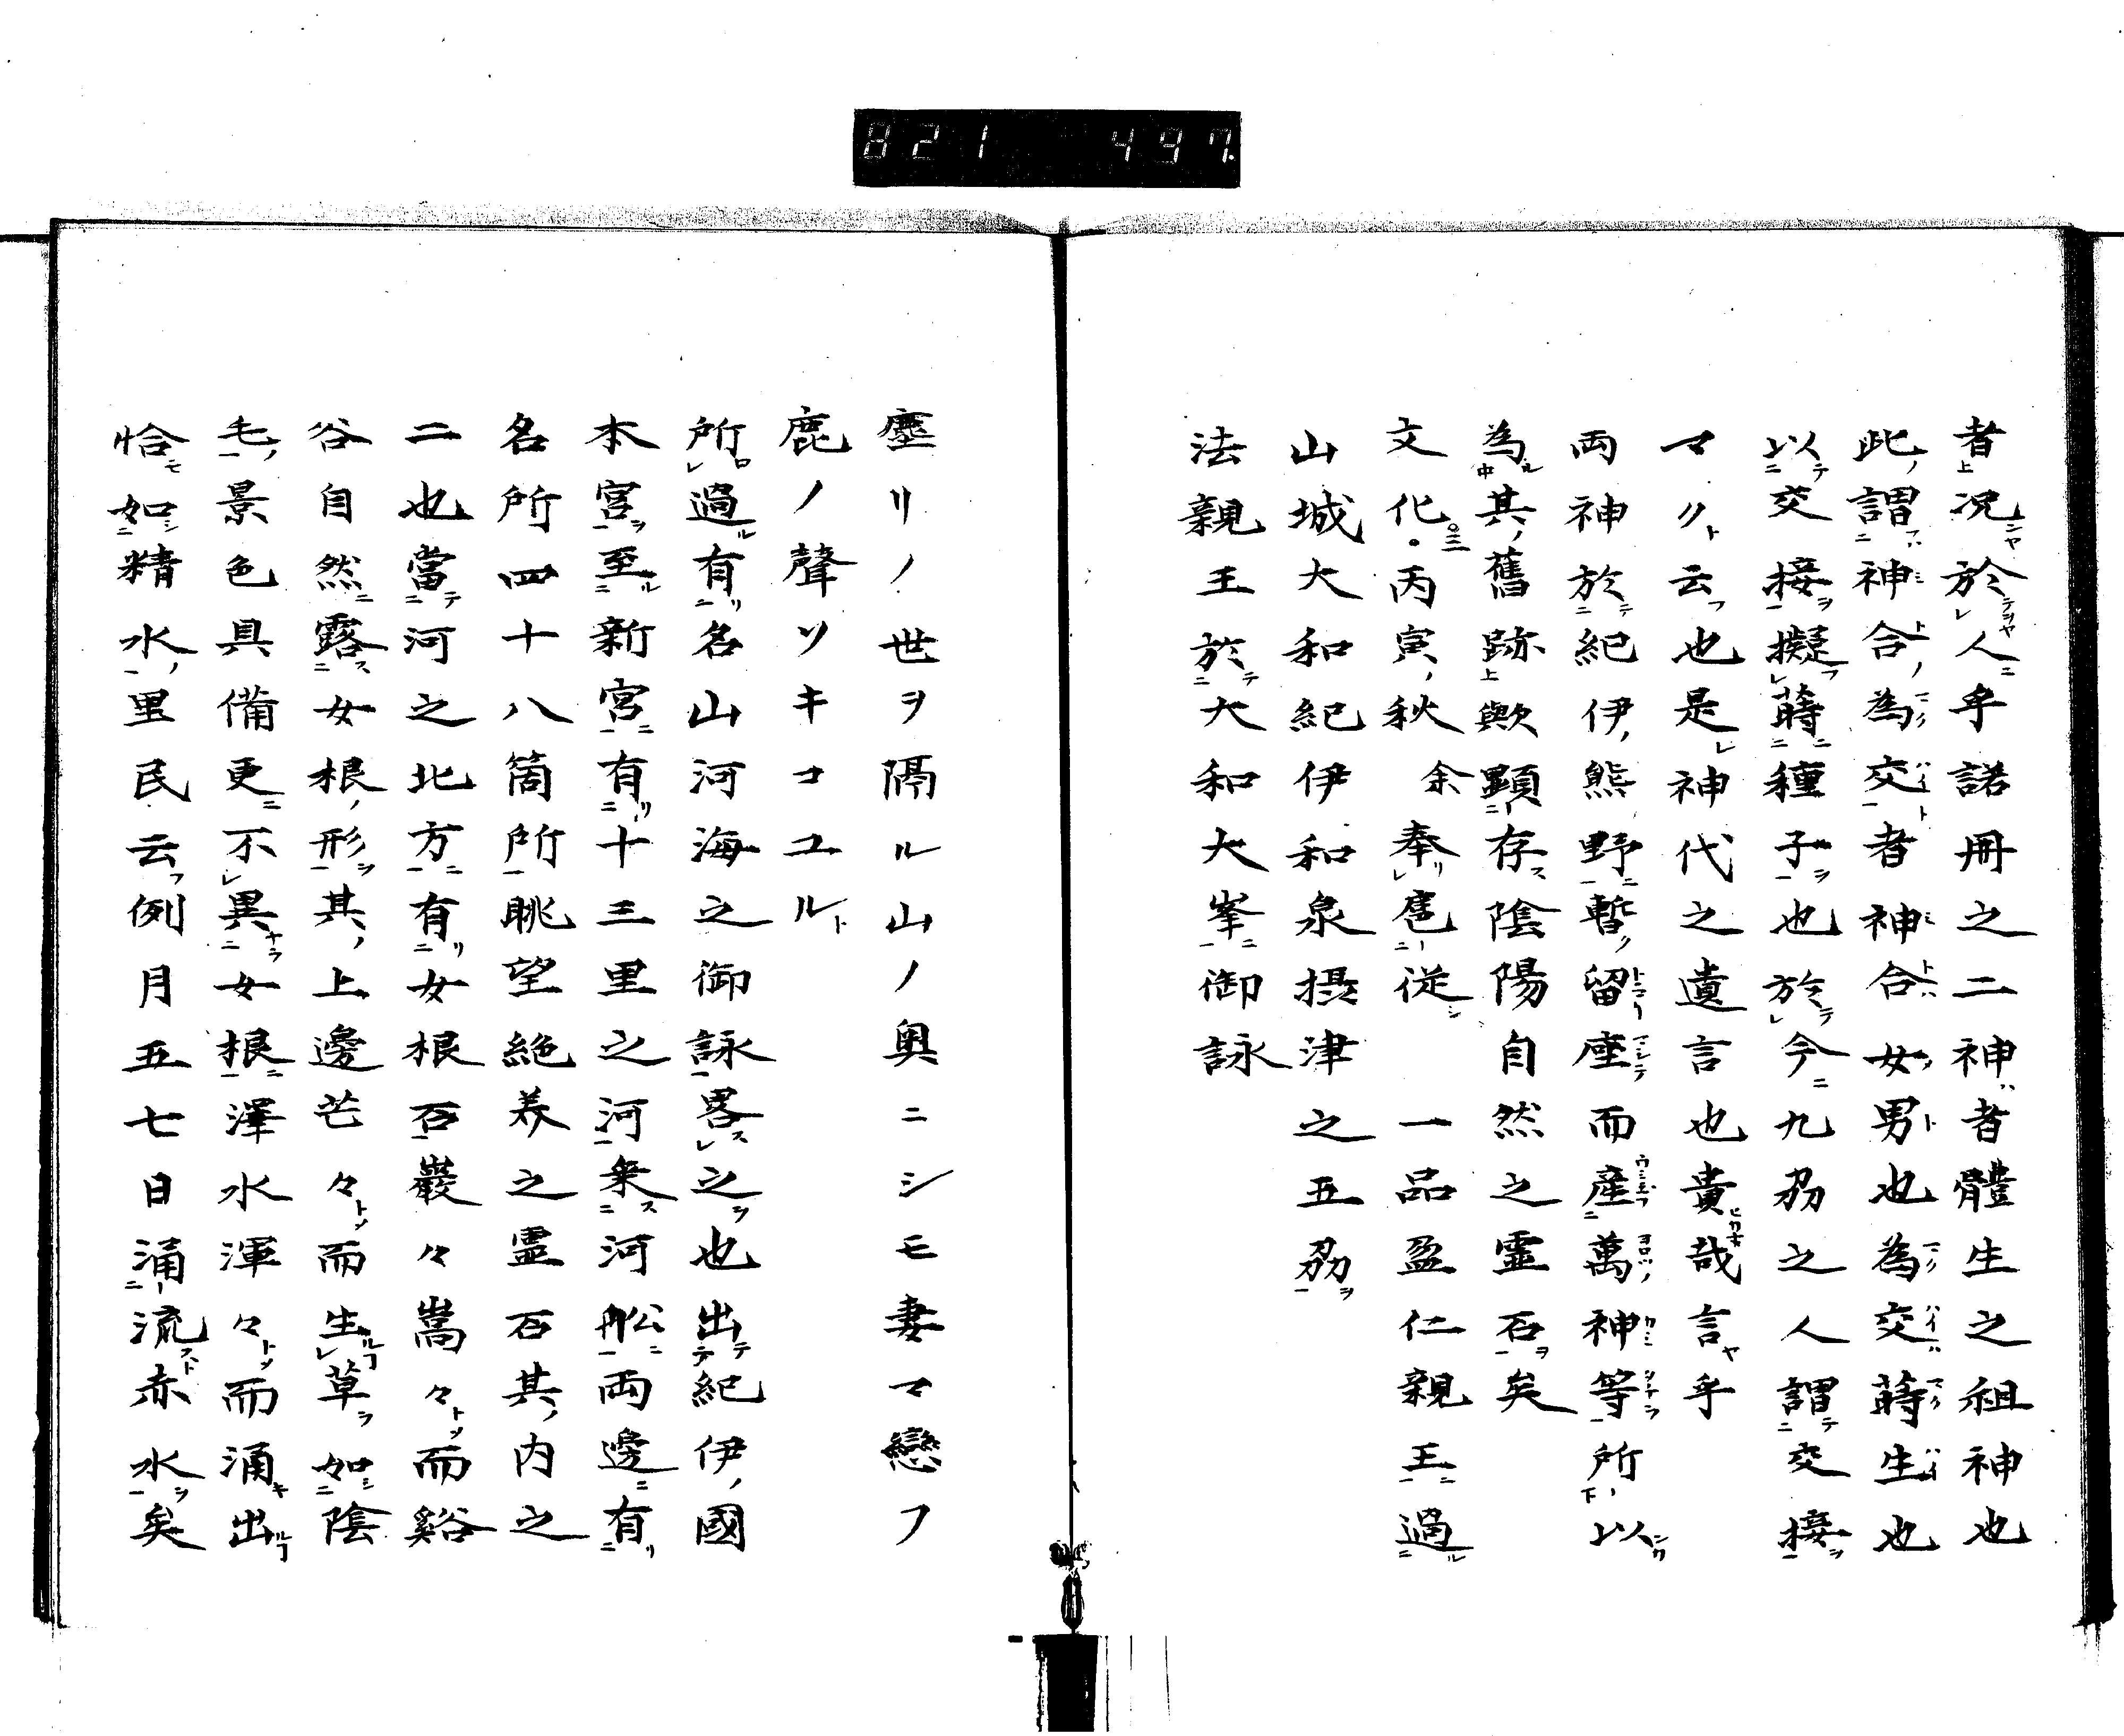 821 497.
者況於人乎諾冊之二神者體生之祖神也
此謂神合為交者神合女男也為交蒔生也
以交接擬蒔種子也於今九刕之人謂交接
マクト云也是神代之遺言也貴哉言乎
両神於紀伊熊野暫留座而産萬神等所以
為其舊跡歟顕存陰陽自然之霊石矣
文化三丙寅秋余奉扈従一品盈仁親王過
山城大和紀伊和泉摂津之五刕
法親王於大和大峯御詠
塵リノ世ヲ隔ル山ノ奥ニシモ妻マ戀フ
鹿ノ聲ソキコユルト
所過有名山河海之御詠畧之也出紀伊國
本宮至新宮有十三里之河乗河舩両邊有
名所四十八箇所眺望絶美之霊石其内之
二也當河之北方有女根石巌々嵩々而谿
谷自然露女根形其上邊芒々而生草如陰
毛景色具備更不異女根澤水渾々而涌出
恰如精水里民云例月五七日涌流赤水矣